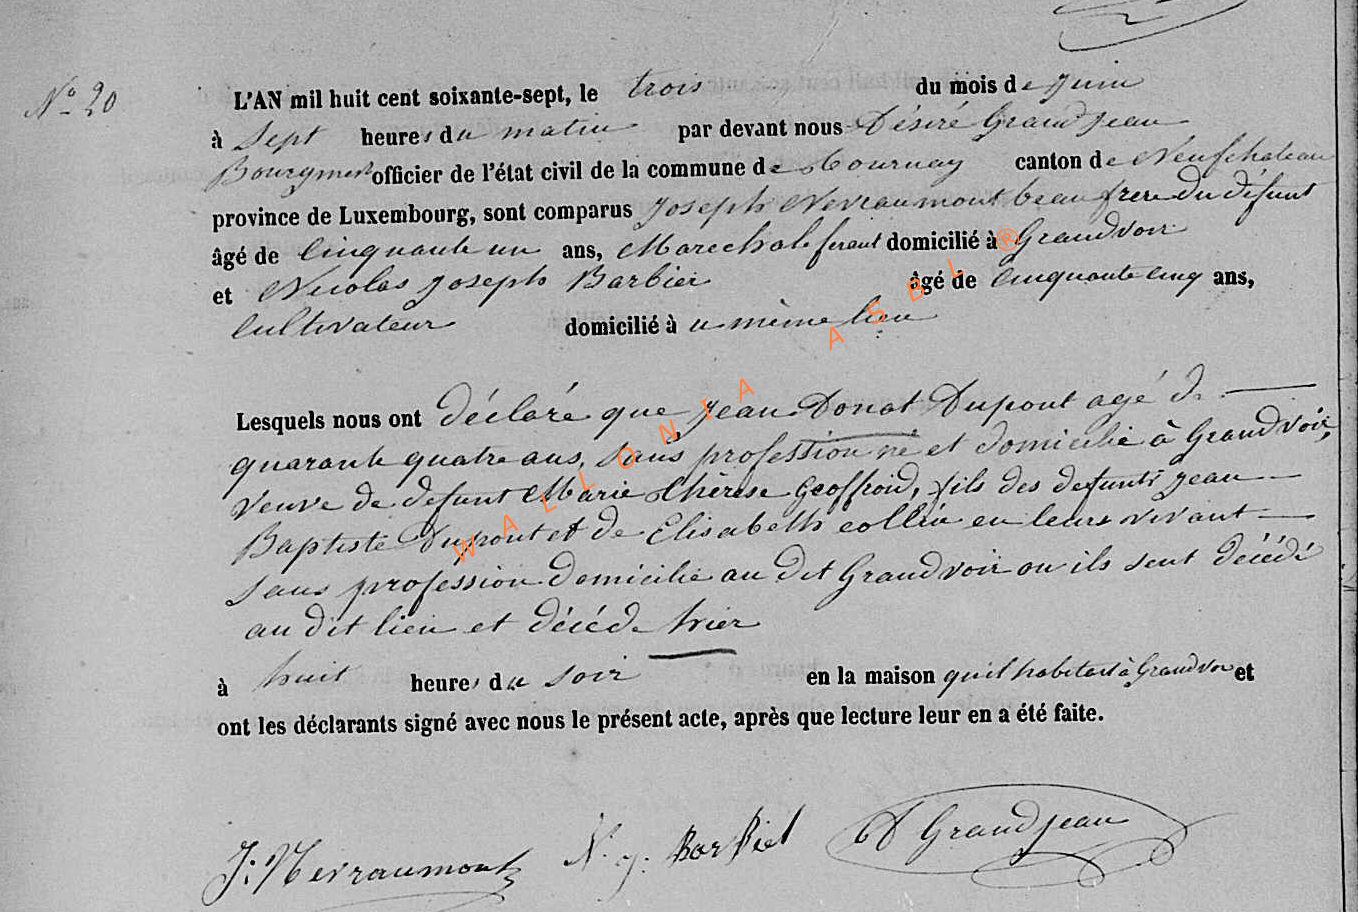 N° 20
L'AN mil huit cent soixante-sept, le trois du mois de Juin
à Sept heures du matin par devant nous Désiré Grandjean
Bourgmest officier de l'état civil de la commune de Tournay canton de Neufchateau
province de Luxembourg, sont comparus Joseph Nevraumont beau frere du défunt
âgé de Cinquante un ans, Marechal ferant domicilié à Grandvoir
et Nicolas Joseph Barbier âgé de Cinquante cinq ans,
Cultivateur domicilié à u même lieu
Lesquels nous ont déclaré que Jean Donat Dupont agé de
quarante quatre ans, sans profession né et domicilié à Grandvoir,
veuve de defunt Marie Thérèse Geoffroid, fils des defunts Jean
Baptiste Dupont et de Elisabeth collin en leurs vivant
sans profession domicilié au dit Grandvoir ou ils sont décédé
au dit lieu et décédé hier
à huit heures du soir en la maison qu'il habitait à Grandvoir et
ont les déclarants signé avec nous le présent acte, après que lecture leur en a été faite.
J: Nevraumont N. j. Barbier D Grandjean
WALLONIA ASBL ®